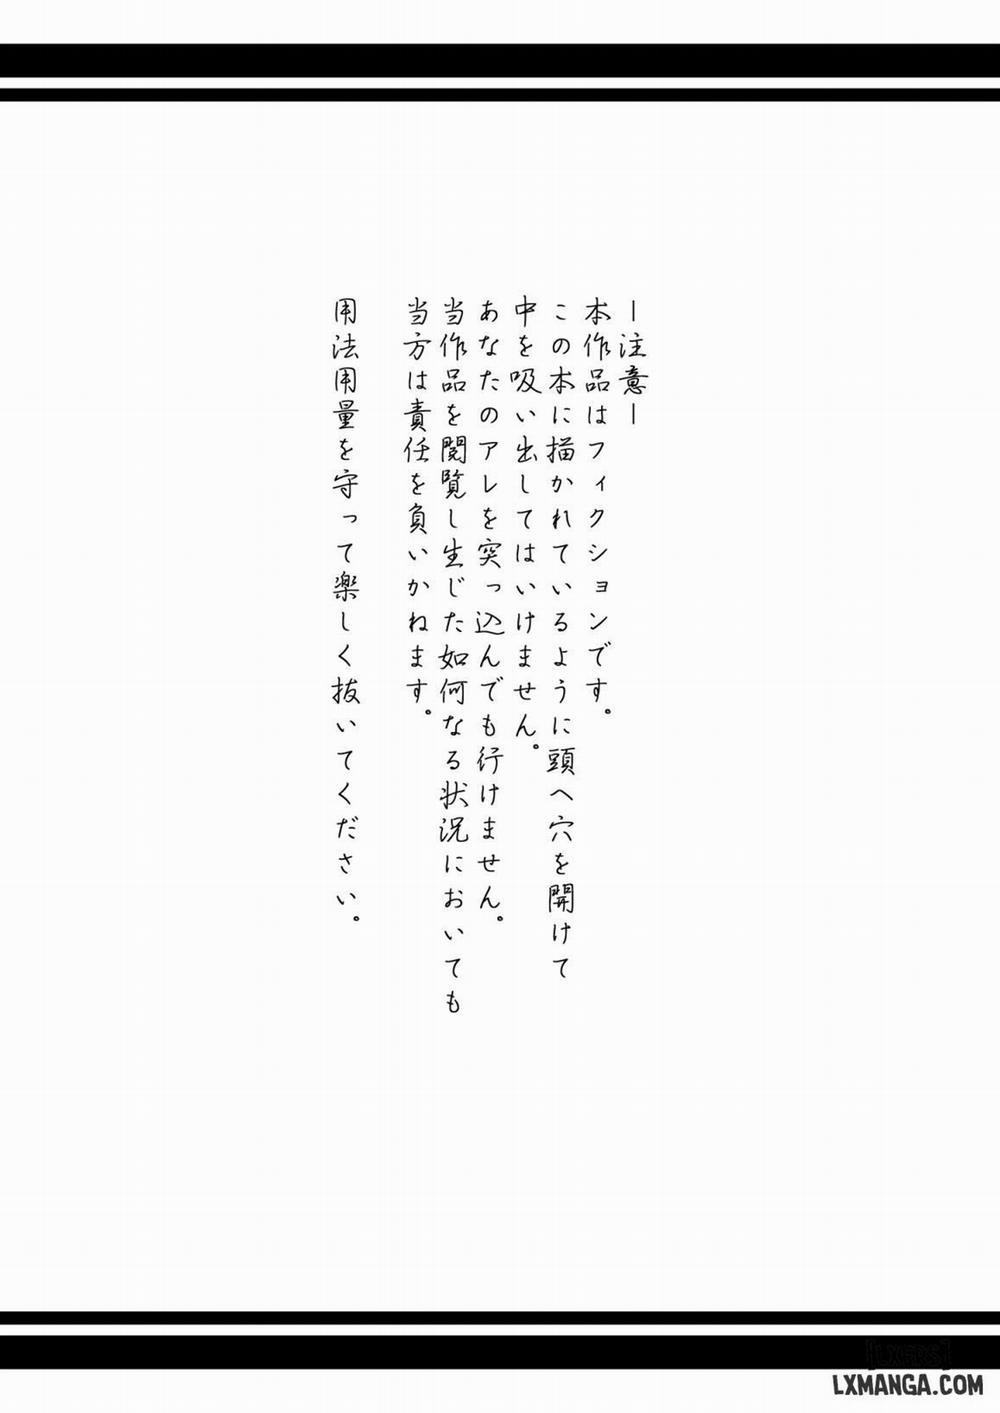 ー注意ー
本作品はフィクションです。
この本に描かれているように頭へ穴を開けて
中を吸い出してはいけません。
あなたのアレを突っ込んでも行けません。
当作品を閲覧し生じた如何なる状況においても
当方は責任を負いかねます。
用法用量を守って楽しく抜いてください。
LXMANGA.COM